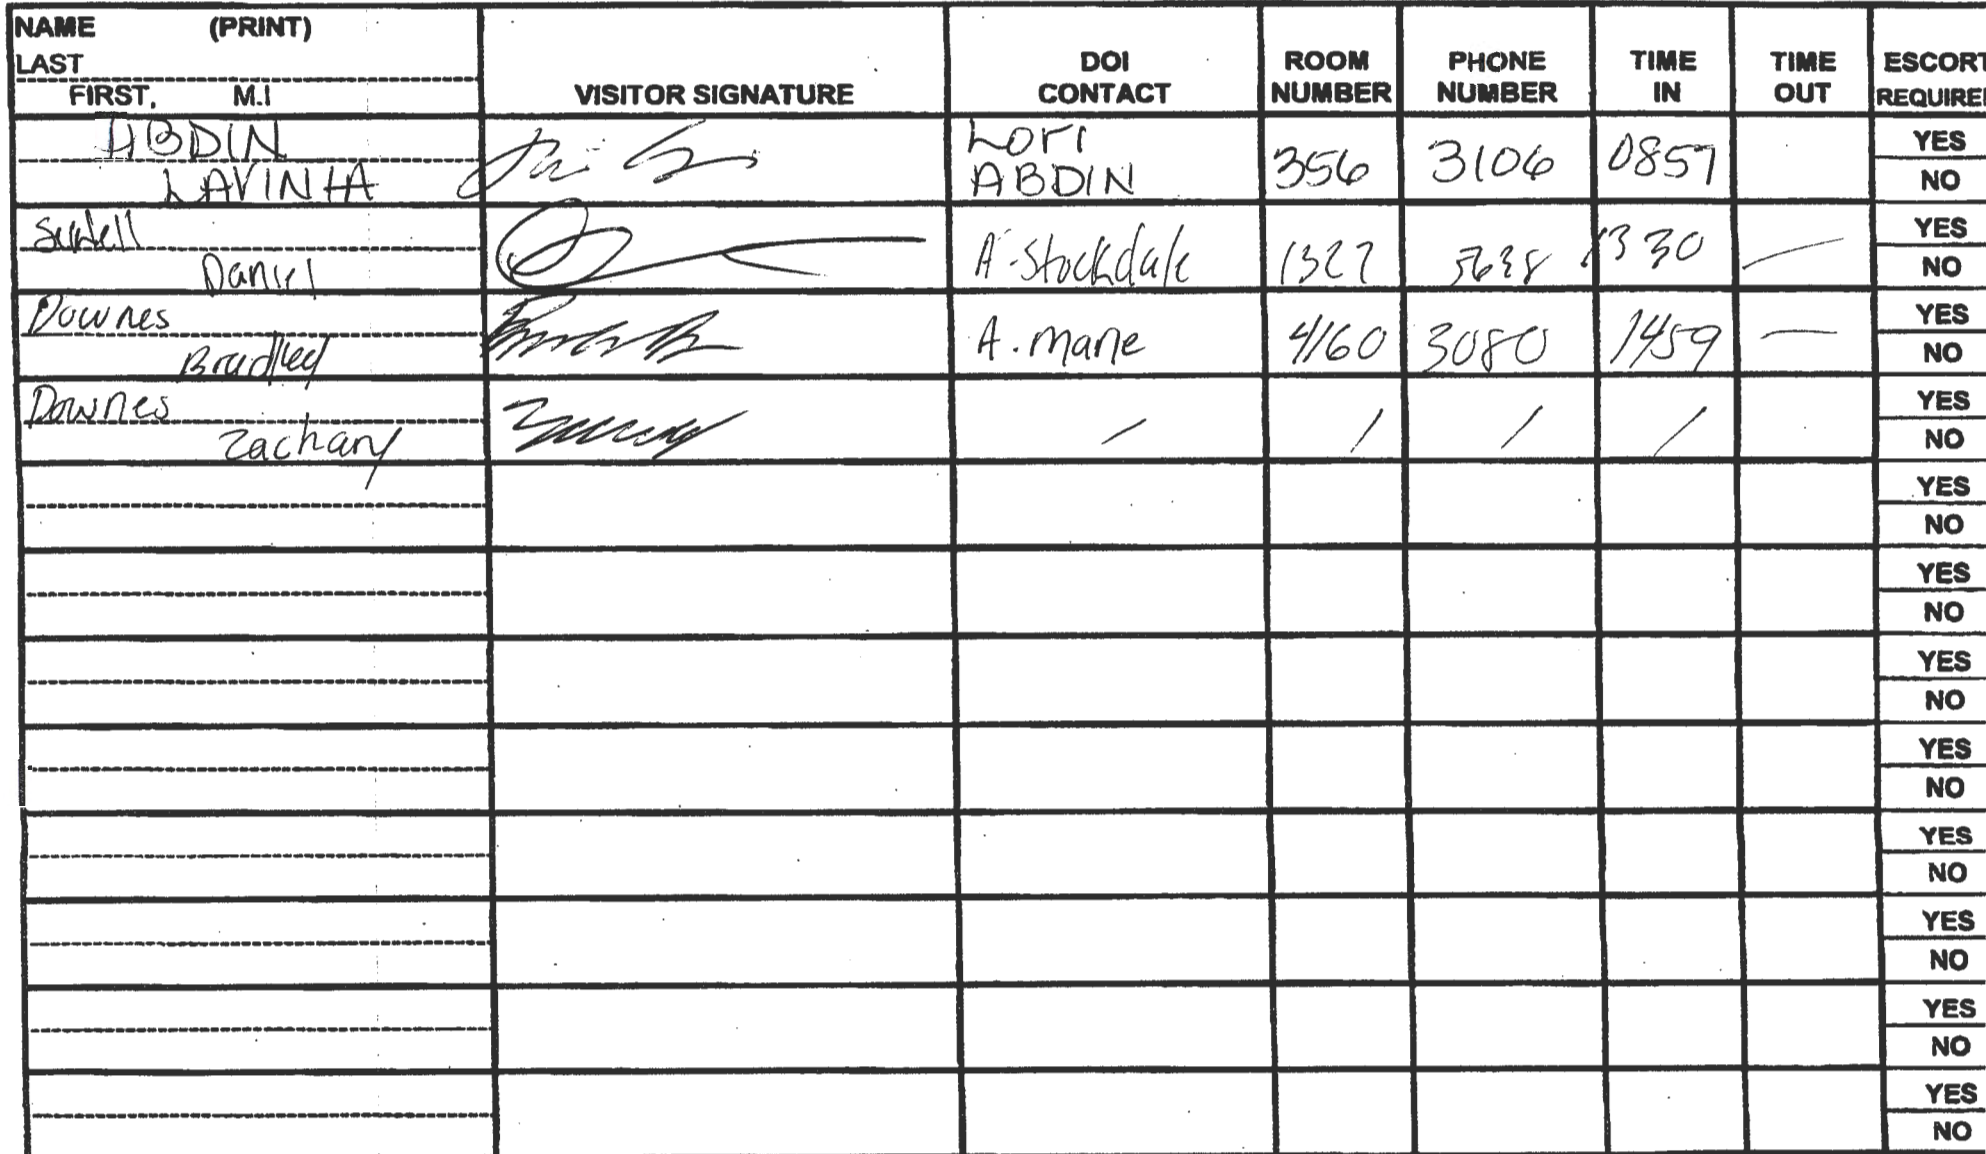 NAME (PRINT)
LAST
FIRST, M.I
VISITOR SIGNATURE
DOI
CONTACT
ROOM
NUMBER
PHONE
NUMBER
TIME
IN
TIME
OUT
ESCORT
REQUIRED
ABDIN
LAVINIA
Lori
ABDIN
356
3106
0857
YES
NO
Daniel
A. Stockdale
1327
5638
1330
—
YES
NO
Downes
Bradley
A. mane
4160
3080
1459
—
YES
NO
Downes
Zachary
/
/
/
/
YES
NO
YES
NO
YES
NO
YES
NO
YES
NO
YES
NO
YES
NO
YES
NO
YES
NO